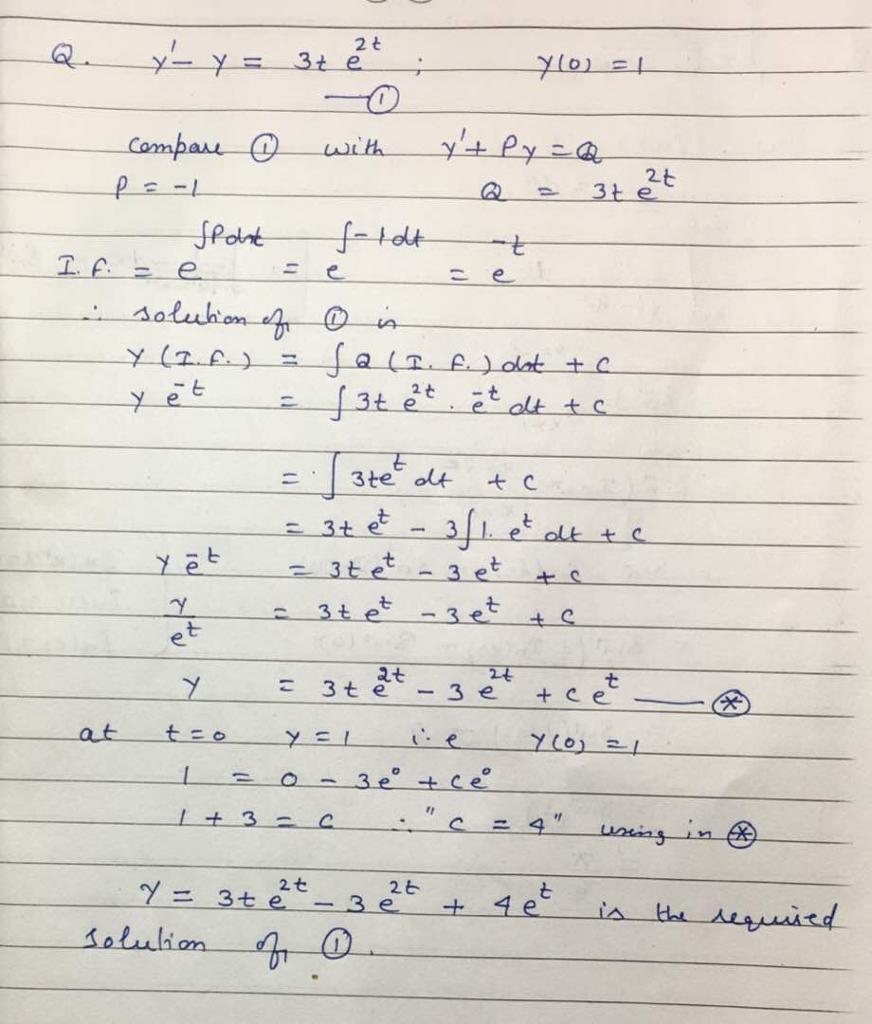 Q. y' - y = 3t e^{2t} ; y(0) = 1
—①
Compare ① with y' + Py = Q
P = -1 Q = 3t e^{2t}
I.F. = e^{∫P dt} = e^{∫-1 dt} = e^{-t}
∴ solution of ① is
y (I.F.) = ∫ Q (I.F.) dt + C
y e^{-t} = ∫ 3t e^{2t} . e^{-t} dt + c
= ∫ 3t e^{t} dt + c
= 3t e^{t} - 3∫ 1. e^{t} dt + c
y e^{-t} = 3t e^{t} - 3 e^{t} + c
y/e^{t} = 3t e^{t} - 3 e^{t} + c
y = 3t e^{2t} - 3 e^{2t} + c e^{t} —⊛
at t = 0 y = 1 i.e y(0) = 1
1 = 0 - 3e^{0} + c e^{0}
1 + 3 = c ∴ "c = 4" using in ⊛
y = 3t e^{2t} - 3 e^{2t} + 4 e^{t} is the required
solution of ①.